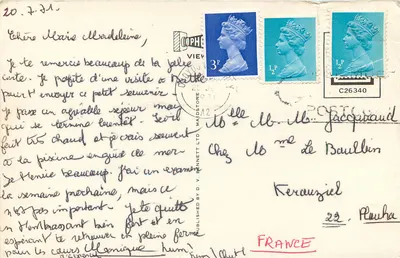 20.7.71.
Chère Marie Madeleine,
Je te remercie beaucoup de ta jolie
carte. Je profite d'une visite à Battle
pour t'envoyer ce petit souvenir
Je passe un agréable séjour mais
qui se termine bientôt. Ici il
fait très chaud et je vais souvent
à la piscine en guise de mer
Je t'envie beaucoup. J'ai un examen
la semaine prochaine, mais ce
n'est pas important. Je te quitte
en t'embrassant bien fort et en
espérant te retrouver en pleine forme
pour les cours Monique
3P
½P
½P
C26340
PUBLISHED BY
Melle M. M. Jacquaud
Chez Mme Le Baulbin
Kerouziel
22. Plouha
FRANCE